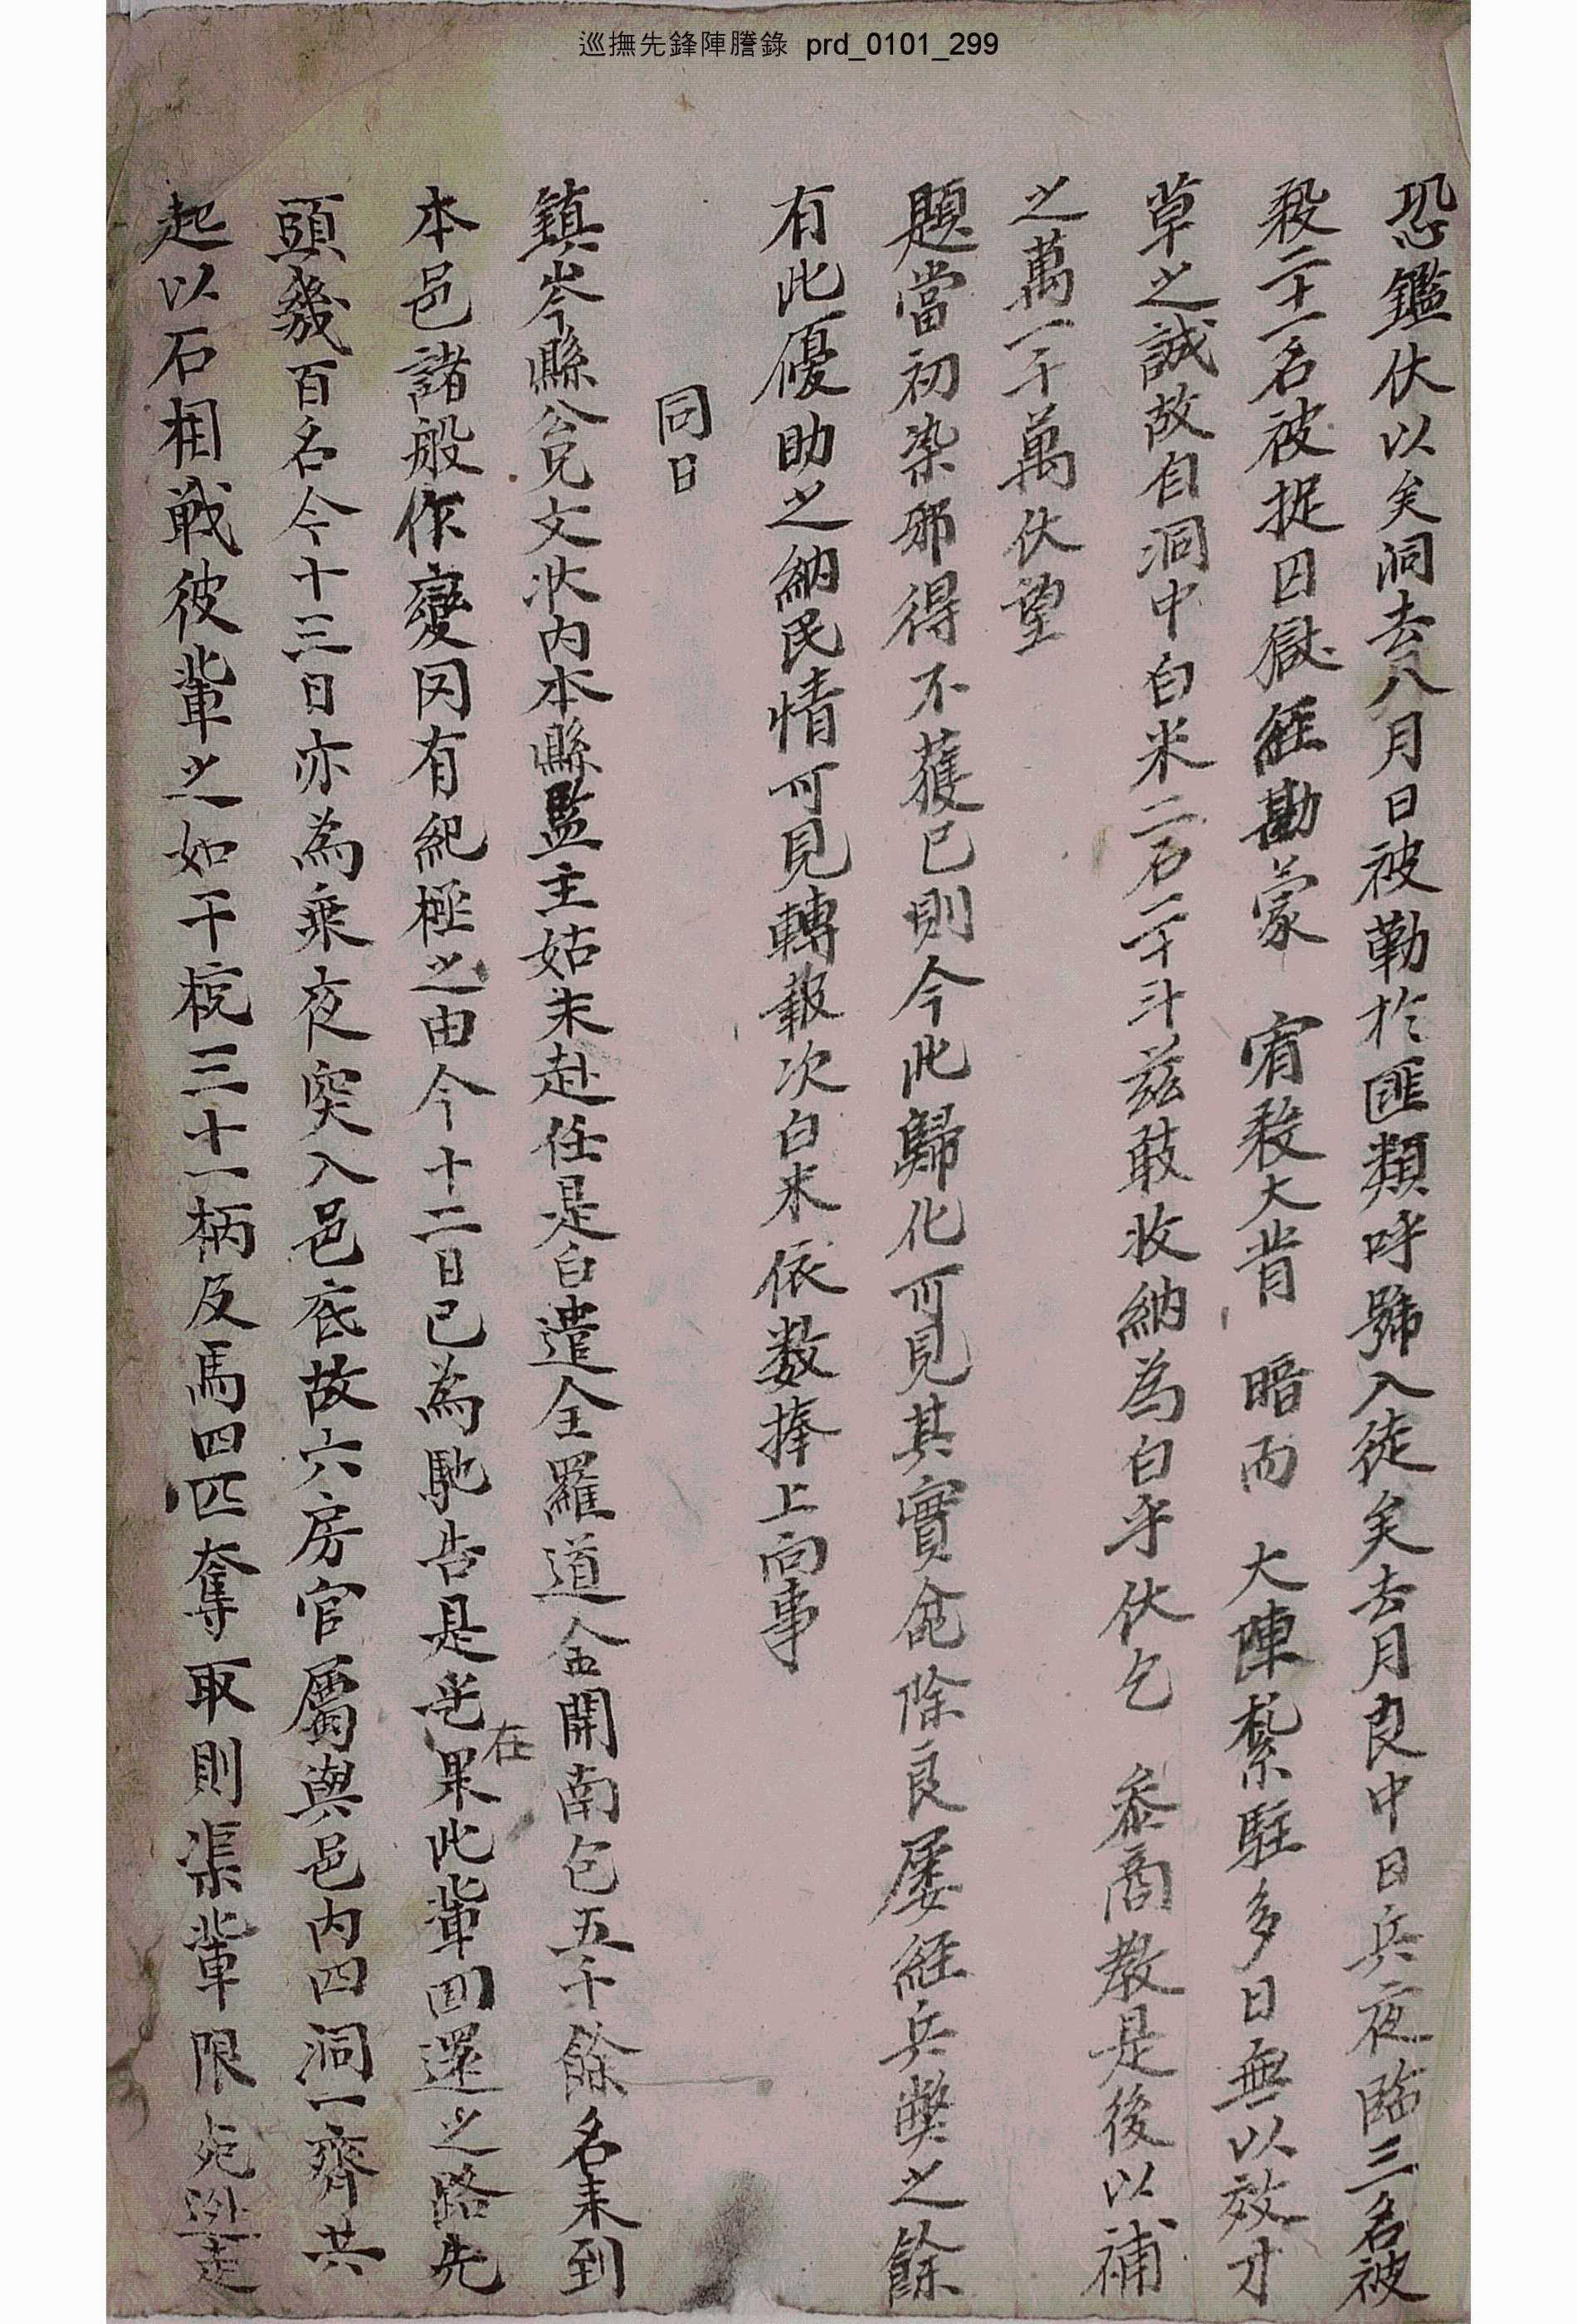 巡撫先鋒陣謄錄 prd_0101_299
恐鑑伏以矣洞去八月日被勒於匪類呼號入徒矣去月良中日兵夜臨三名被
殺二十一名被捉囚獄経勘蒙 宥殺大眚 暗而 大陣紮駐多日無以效寸
草之誠故自洞中白米二石二十斗玆敢收納為白乎伏乞 叅商敎是後以補
之萬一千萬伏望
題當初染邪得不獲已則今此歸化可見其實兺除良屢経兵弊之餘
有此優助之納民情可見轉報次白米依数捧上向事
同日
鎮岑縣公兄文狀內本縣監主姑未赴任是白遣全羅道金開南包五十餘名來到
本邑諸般作變罔有紀極之由今十二日已為馳告是在果此輩回還之路先
頭幾百名今十三日亦為乘夜突入邑底故六房官屬與邑內四洞一齊共
起以石相戰彼輩之如干梡三十一柄及馬四匹奪取則渠輩限死逃走